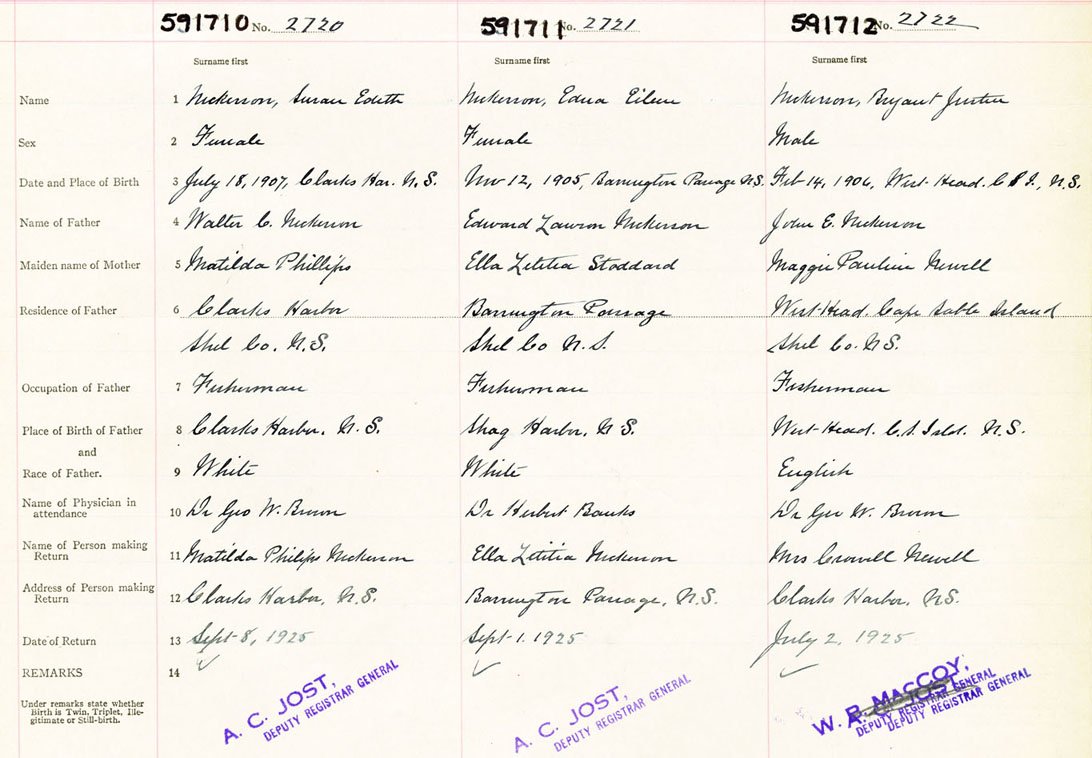 591710 No. 2720 591711 No. 2721 591712 No. 2722
Surname first Surname first Surname first
Name 1 Nickerson, Susan Edith Nickerson, Edna Eileen Nickerson, Bryant Justin
Sex 2 Female Female Male
Date and Place of Birth 3 July 18, 1907, Clarks Har. N.S. Nov 12, 1905, Barrington Passage N.S. Feb 14, 1906, West Head. C S I., N.S.
Name of Father 4 Walter C. Nickerson Edward Lawson Nickerson John E. Nickerson
Maiden name of Mother 5 Matilda Phillips Ella Letitia Stoddard Maggie Pauline Newell
Residence of Father 6 Clarks Harbor Barrington Passage West Head. Cape Sable Island
Shel Co. N.S. Shel Co N.S. Shel Co. N.S.
Occupation of Father 7 Fisherman Fisherman Fisherman
Place of Birth of Father 8 Clarks Harbor, N.S. Shag Harbor, N.S. West Head. C.S. Isld. N.S.
and
Race of Father. 9 White White English
Name of Physician in attendance 10 Dr Geo W. Brown Dr Herbert Banks Dr Geo W. Brown
Name of Person making Return 11 Matilda Philips Nickerson Ella Letitia Nickerson Mrs Crowell Newell
Address of Person making Return 12 Clarks Harbor, N.S. Barrington Passage, N.S. Clarks Harbor, N.S.
Date of Return 13 Sept 8, 1925 Sept 1. 1925 July 2, 1925
REMARKS 14
Under remarks state whether
Birth is Twin, Triplet, Ille-
gitimate or Still-birth.
A. C. JOST, A. C. JOST, W. R. MACCOY,
DEPUTY REGISTRAR GENERAL DEPUTY REGISTRAR GENERAL DEPUTY REGISTRAR GENERAL
A. C. JOST,
DEPUTY REGISTRAR GENERAL